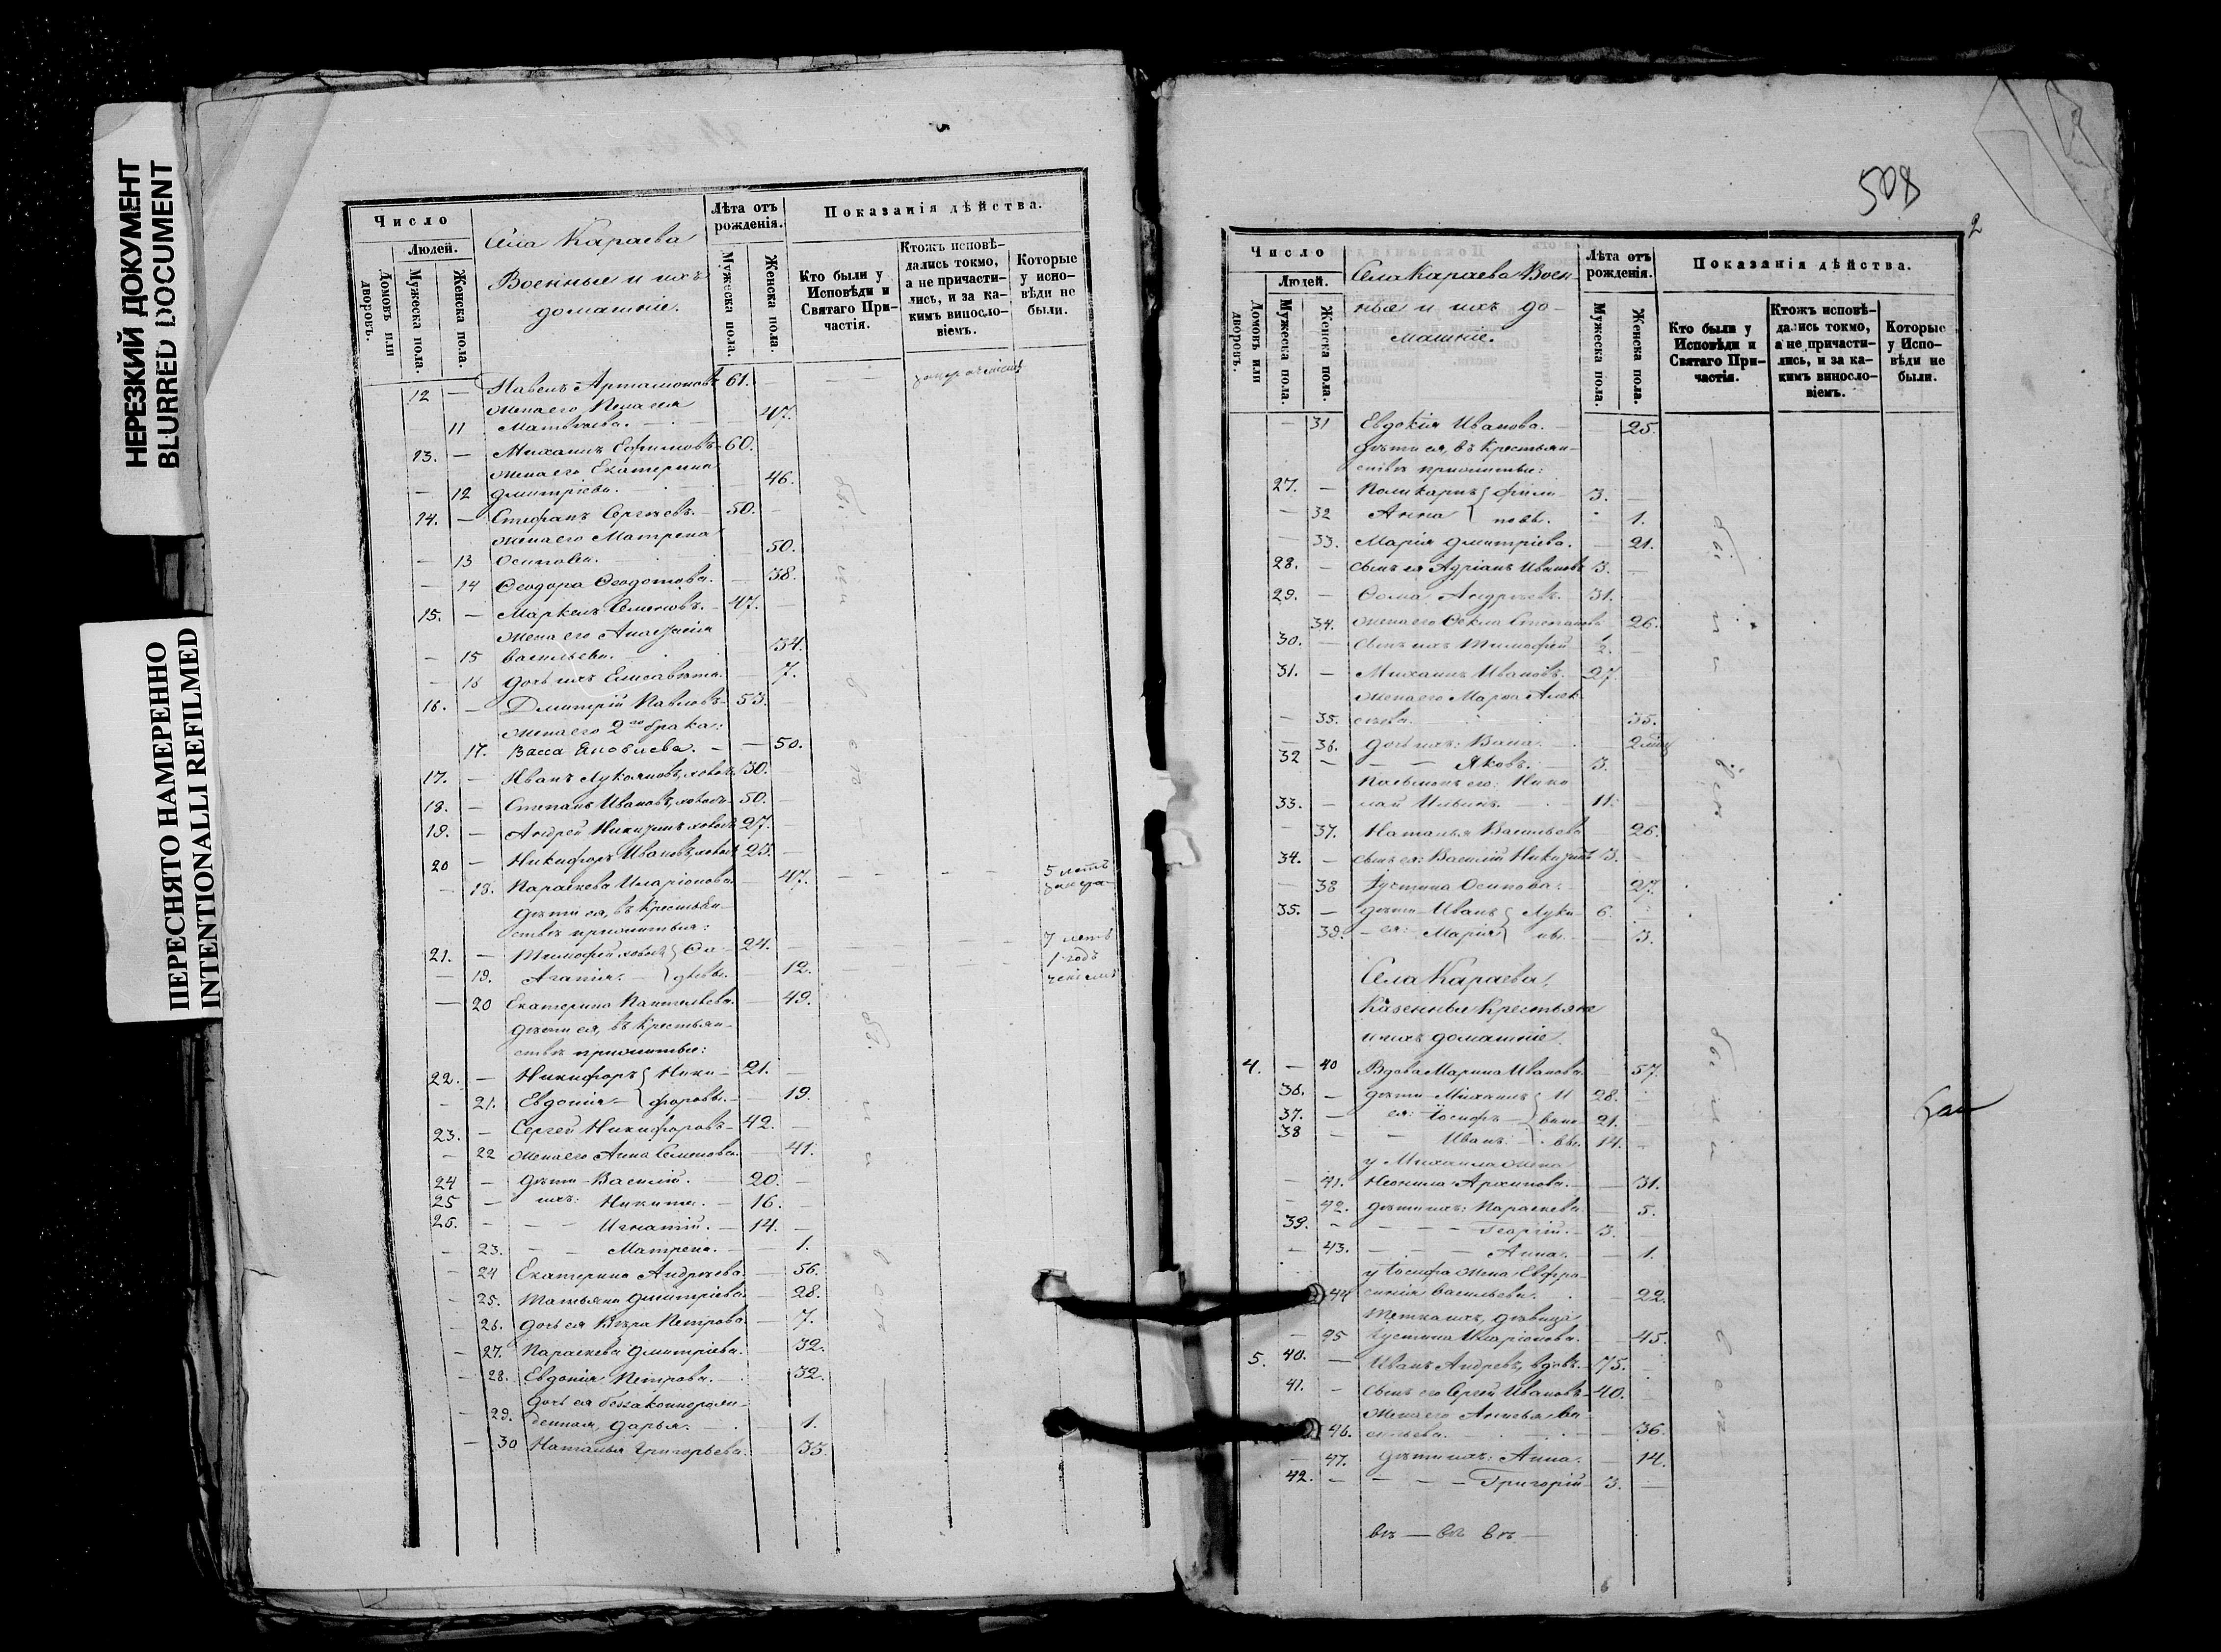 НЕРЕЗКИЙ ДОКУМЕНТ
BLURRED DOCUMENT
ПЕРЕСНЯТО НАМЕРЕННО
INTENTIONALLI REFILMED
Число
Людей.
Домовъ или дворовъ.
Мужеска пола.
Женска пола.
Села Караева
Военные и ихъ
домашніе.
Лѣта отъ рожденія.
Мужеска пола.
Женска пола.
Показанія дѣйства.
Кто были у Исповѣди и Святаго Причастія.
Ктожъ исповѣдались токмо, а не причастились, и за какимъ винословіемъ.
Которые у исповѣди не были.
12 — Павелъ Артамоновъ 61. —
жена его Пелагея
— 11 Матвѣева. — 47.
13. — Михаилъ Ефимовъ 60.
жена его Екатерина
— 12 Дмитріева. — 46.
14. — Стефанъ Сергѣевъ. — 50. —
жена его Матрена
— 13 Осипова. 50.
— 14 Ѳеодора Ѳеодотова. — 38.
15. — Маркелъ Семеновъ. — 47. —
жена его Анастасія
— 15 Васильева. 34.
— 16 дочь ихъ Елисавета. 7.
16. — Дмитрій Павловъ — 53. —
жена его 2го брака:
17. Васса Яковлева. — — 50.
17. — Иванъ Лукояновъ, холостъ 30.
18. — Степанъ Ивановъ, холостъ 50. —
19. — Андрей Никитинъ холостъ 27. —
20 — Никифоръ Ивановъ, холостъ 25. —
— 18. Параскева Иларіонова. 47. — 5 лѣтъ
дѣти ея, въ крестьян-
ствѣ прижитыя:
21. — Тимофей холостъ Ѳа- 24. — 7 лѣтъ
— 19. Агапія. — дѣевы. — 12. 1 годъ
— 20 Екатерина Пантелѣева. — 49.
дѣти ея, въ крестьян-
ствѣ прижитые:
22. — Никифоръ Ники- 21. —
— 21. Евдокія — форовы. — 19.
23. — Сергей Никифоровъ — 42. —
— 22 жена его Анна Семенова. 41.
24 — дѣти Василій. — 20. —
25 — ихъ: Никита. — 16. —
26. — — Игнатій. — 14. —
— 23. — — Матрена. — 1.
— 24 Екатерина Андреева. 56.
— 25. Татьяна Дмитріева. 28.
— 26. дочь ея Вѣра Петрова. 7.
— 27. Параскева Дмитріева. 32.
— 28. Евдокія Петрова. 32.
дочь ея беззаконнорож-
— 29. денная, Дарья. 1.
— 30 Наталья Григорьева. 35.
были
всѣ
были
всѣ
508
2
Число
Людей.
Домовъ или дворовъ.
Мужеска пола.
Женска пола.
Села Караева Воен-
ные и ихъ до-
машніе.
Лѣта отъ рожденія.
Мужеска пола.
Женска пола.
Показанія дѣйства.
Кто были у Исповѣди и Святаго Причастія.
Ктожъ исповѣдались токмо, а не причастились, и за какимъ винословіемъ.
Которые у Исповѣди не были.
— 31 Евдокія Иванова. — 25.
дѣти ея, въ крестьян-
ствѣ прижитые:
27. — Поликарпъ Фили- 3. —
— 32 Анна повы. 1.
— 33. Марія Дмитріева. — 21.
28. — сынъ ея Адріанъ Ивановъ 3. —
29. — Ѳома Андреевъ. 31. —
34. жена его Ѳекла Степанова 26.
30. — сынъ ихъ Тимофей 1/2. —
31. — Михаилъ Ивановъ. — 27 —
жена его Марѳа Алек-
— 35. сѣева. 35.
— 36. дочь ихъ: 
32 — — — Яковъ. — 3.
его: Нико-
33. — лай Ильинъ. 11. —
— 37. Наталья Васильева 26.
34. — сынъ ея: Василій Никитинъ 3. —
— 38 Іустина Осипова. 27.
35. — дѣти Иванъ Луки- 6. —
39. — ея: Марія ны. — 3.
Села Караева,
Казенные Крестьяне
и ихъ домашніе.
4. — 40 Вдова Марина Иванова. 57.
36. — дѣти Михаилъ И 28. —
37. — ея: Іосифъ — вано- 21. —
38 — — Иванъ. вы. 14. —
у Михаила жена
— 41. Неонила Архипова. — 31.
— 42. дѣти ихъ: Параскева. 5.
39. — — — Георгій. — 3. —
— 43. — — — Анна. — 1.
у Іосифа жена Евфро-
44 синія Васильева. — 22.
Тетка ихъ, дѣвица
— 45 Іустина Иларіонова. — 45.
5. 40. — Иванъ Андреевъ, вдовъ. — 75. —
41. — сынъ его Сергей Ивановъ — 40. —
жена его Анисья Ва-
46. сильева. — 36.
— 47. дѣти ихъ: Анна. — 14.
42. — — — Григорій — 3. —
были
всѣ
были
всѣ